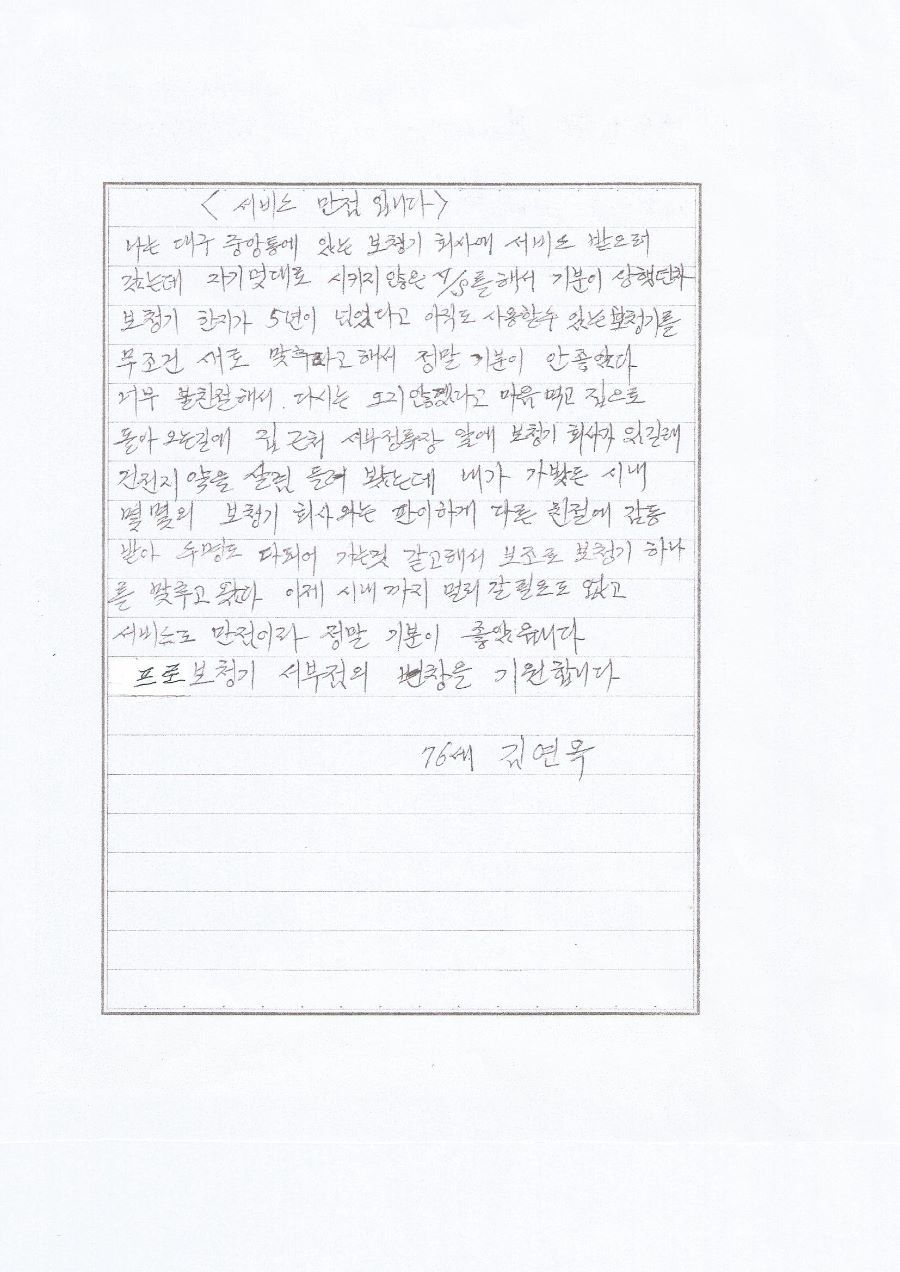 < 서비스 만점 입니다 >
나는 대구 중앙통에 있는 보청기 회사에 서비스 받으러
갔는데 자기멋대로 시키지 않은 A/S를 해서 기분이 상했는데
보청기 한지가 5년이 넘었다고 아직도 사용할수 있는 보청기를
무조건 새로 맞추라고 해서 정말 기분이 안 좋았다
너무 불친절해서 다시는 오지 않겠다고 마음 먹고 집으로
돌아 오는길에 집 근처 서부정류장 앞에 보청기 회사가 있길래
건전지 약을 살림 들여 봤는데 내가 가봤든 시내
몇몇의 보청기 회사와는 판이하게 다른 친절에 감동
받아 수명도 다되어 가는것 같고해서 보조로 보청기 하나
를 맞추고 왔다 이제 시내까지 멀리 갈 필요도 없고
서비스도 만점이라 정말 기분이 좋았읍니다
프로보청기 서부점의 번창을 기원합니다
76세 김연옥